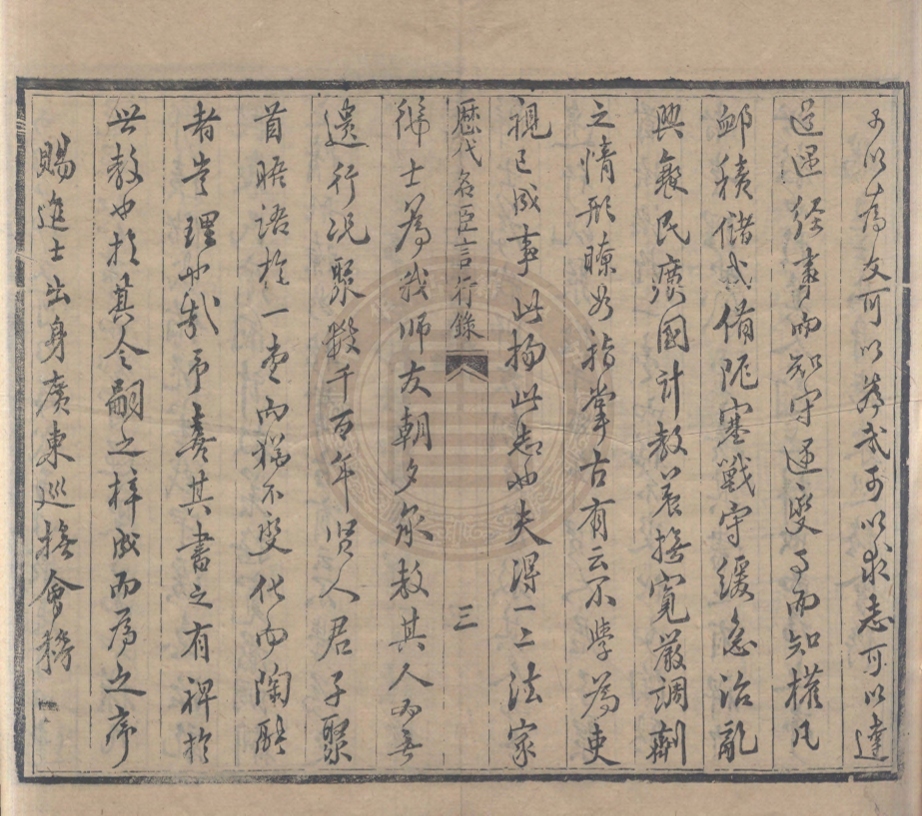 可以為文可以武可以求志可以達
道遇經事而知守遇變事而知權凡
卹積儲武備阨塞戰守緩急治亂
興衰民瘼國計教養撫寬嚴調劑
之情形瞭如指掌古有云不學為吏
視已成事此物此志也夫得一二法家
歷代名臣言行錄 三
拂士為我師友朝夕承教其人必無
遺行况聚數千百年賢人君子聚
首晤語於一堂而猶不變化而陶融
者豈理也哉予喜其書之有裨於
世教也於其令嗣之梓成而為之序
賜進士出身廣東巡撫會稽